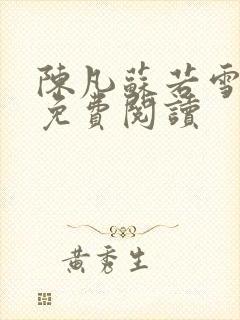 陳凡蘇若雪
免費閱讀
黃秀生